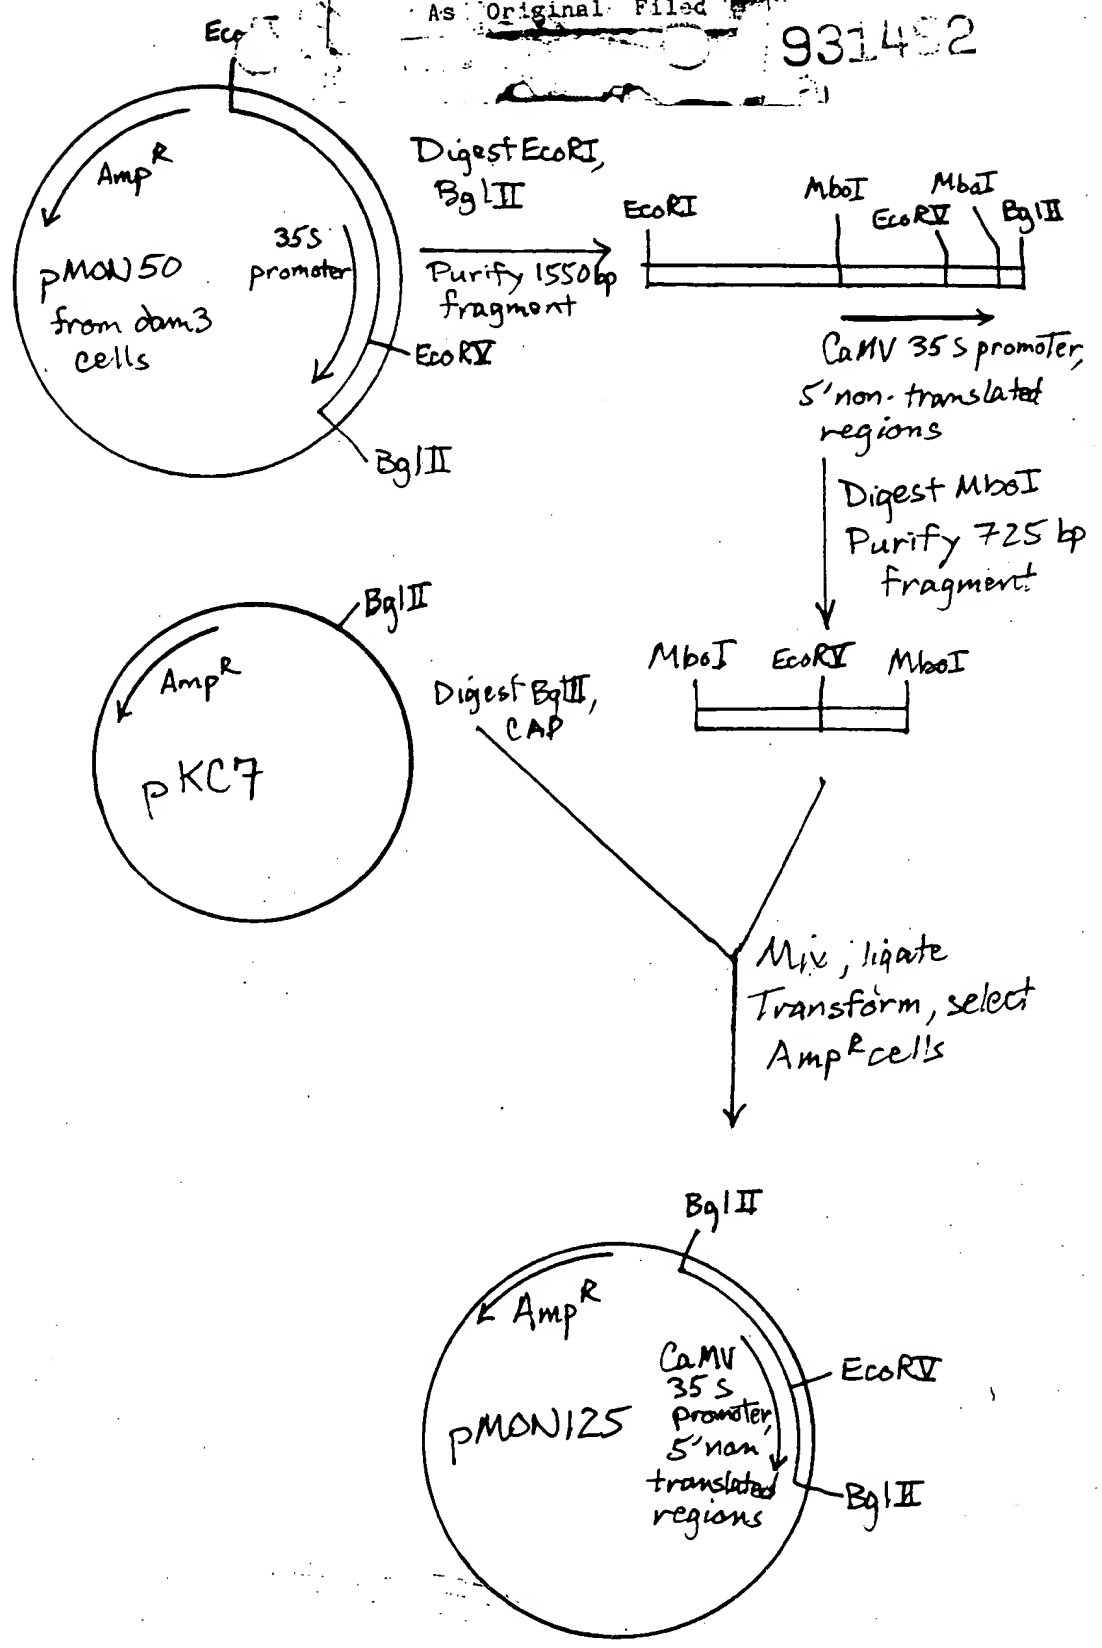 As Original Filed
931452
Eco
Amp R
pMON50
from dam3
cells
35S
promoter
EcoRV
BglII
Digest EcoRI,
BglII
Purify 1550 bp
fragment
EcoRI
MboI
EcoRV
MboI
BglII
CaMV 35S promoter,
5' non-translated
regions
Digest MboI
Purify 725 bp
fragment
BglII
Amp R
pKC7
Digest BglII,
CAP
MboI EcoRV MboI
Mix, ligate
Transform, select
Amp R cells
BglII
Amp R
pMON125
CaMV
35S
promoter,
5' non
translated
regions
EcoRV
BglII